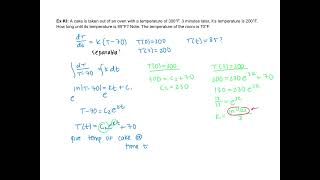 Ex #3: A cake is taken out of an oven with a temperature of 300°F. 3 minutes later, it's temperature is 200°F.
How long until its temperature is 85°F? Note: The temperature of the room is 70°F.
dT/dt = k(T-70)
T(0)=300
T(3)=200
T(t)=85?
separable
∫ dT/(T-70) = ∫ k dt
ln|T-70| = kt + C₁
T-70 = C₂e^kt
T(t) = C₂e^kt + 70
give temp of cake @
time t
T(0)=300
300 = C₂+70
C₂ = 230
T(3)=200
200 = 230e^3k + 70
130 = 230e^3k
13/23 = e^3k